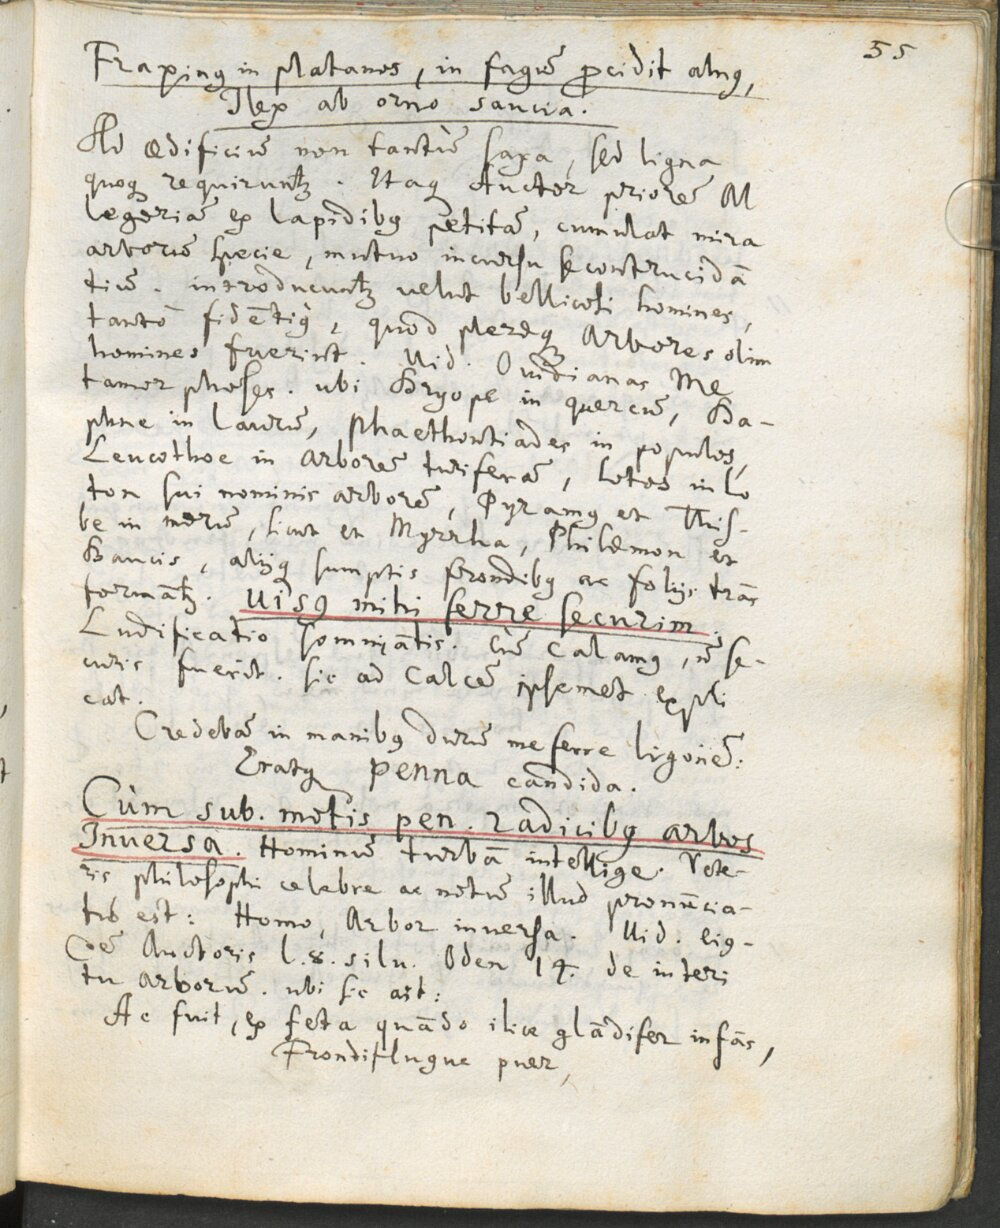 55
Fraxinꝰ in platanos, in fagū ꝓcidit alnꝰ,
Ilex ab orno saucia.
Ad ædificiū non tantū saxa, sed ligna
quoqꝫ requirunt̃. Itaqꝫ Auctor priorē Al
legoriā ex lapidibꝰ petitā, cumulat mira
arborū specie, mutuo incursu se contrucidā
tiū. introducunt̃ velut bellicosi homines,
tantò fidētiꝰ, quod pleræqꝫ Arbores olim
homines fuerint. Uid. Ouidianas Me
tamorphoses. ubi Dryope in quercū, Da-
phne in Laurū, Phaethontiades in populos,
Leucothoe in arborē turiferā, Lotos in lo
ton sui nominis arborē, Pyramꝰ et This-
be in morū, sicut et Myrrha, Philemon et
Baucis, alijqꝫ sumptis frondibꝰ ac folijs trās
formāt̃. Uisꝰ mihi ferre securim.
Ludificatio somniātis. cū calamꝰ, nō se-
curis fuerit. sic ad calcē ipsemet expli
cat.
Credebā in manibꝰ durū me ferre ligonē:
Eratqꝫ penna candida.
Cùm sub. motis pen. radicibꝰ arbos
Inuersa. Hominū turbā intellige. Vete-
ris philosophi celebre ac notū illud pronūcia-
tū est: Homo, Arbor inuersa. Uid. eiꝰ-
Auctoris l.8. silu. Oden 14. de interi
tu arborū. ubi sic ait:
Ac fuit, ex feta quādo ilice glādifer infās,
Frondifluqꝫue puer,